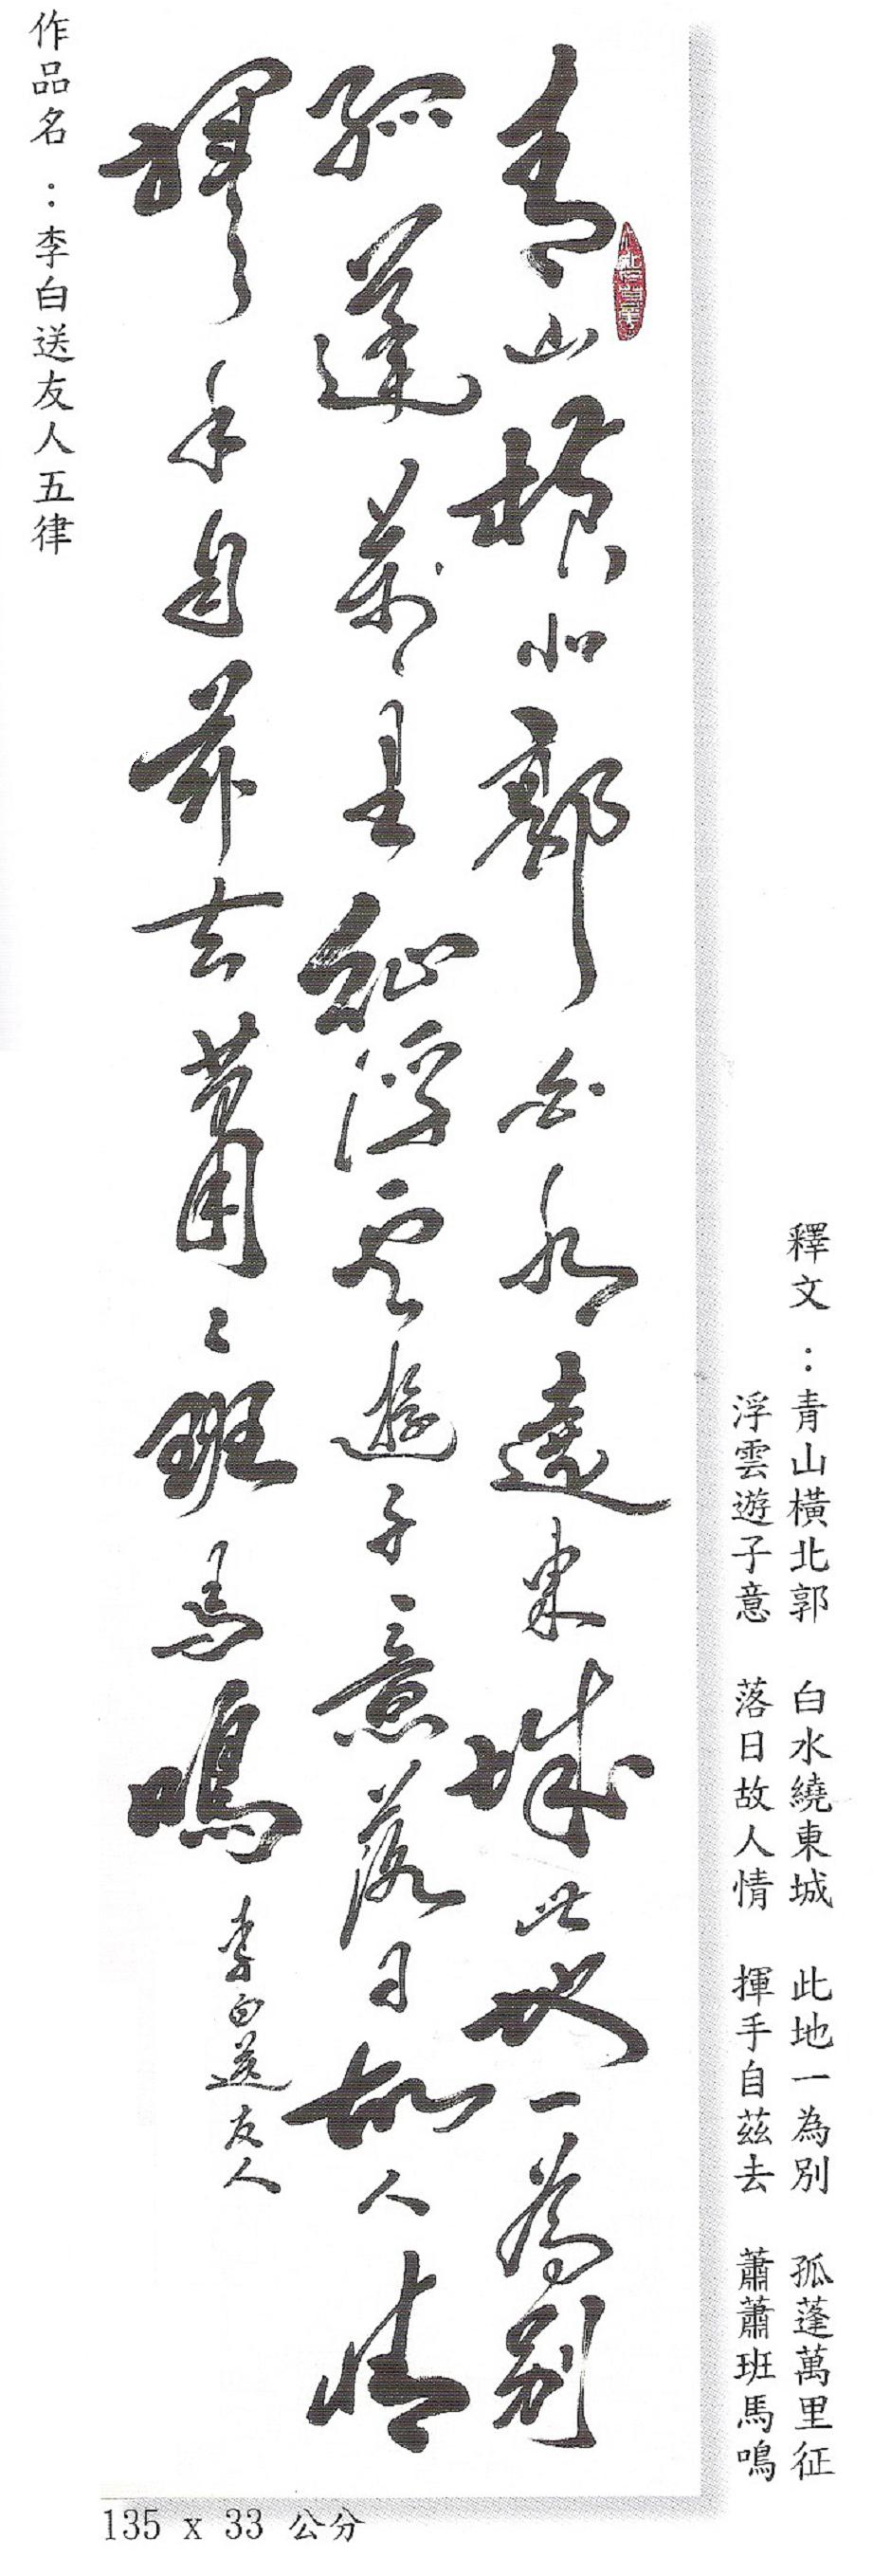 釋文：青山橫北郭　白水繞東城　此地一為別　孤蓬萬里征
浮雲遊子意　落日故人情　揮手自茲去　蕭蕭班馬鳴
青山橫北郭白水遶東城此地一為別
孤蓬萬里征浮雲遊子意落日故人情
揮手自茲去蕭〻班馬鳴　李白送友人
作品名：李白送友人五律
135 x 33 公分